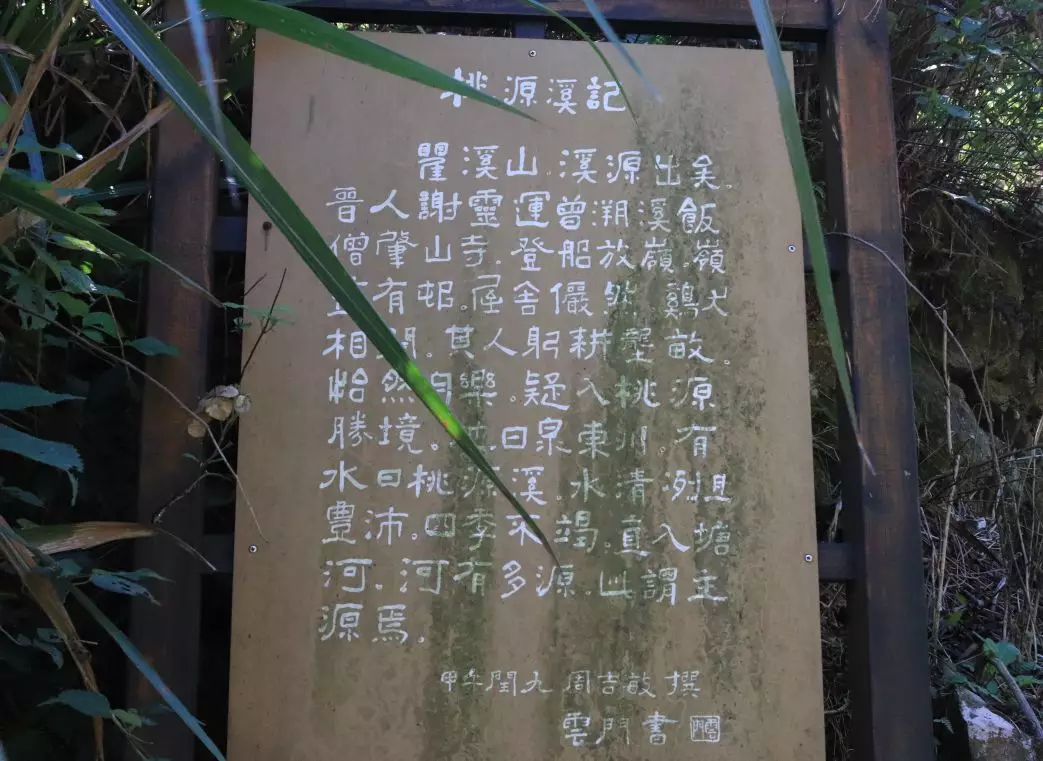 桃源溪記
瞿溪山.溪源出矣.
晉人謝靈運曾溯溪飯
僧肇山寺.登船放嶺.嶺
有邨.屋舍儼然.鷄犬
相聞.其人躬耕壟畝.
怡然自樂.疑入桃源
勝境.曰泉東川.有
水曰桃源溪.水清冽且
豊沛.四季不竭.直入塘
河.河有多源.此謂主
源焉.
甲午閏九 周吉敏 撰
雲門書